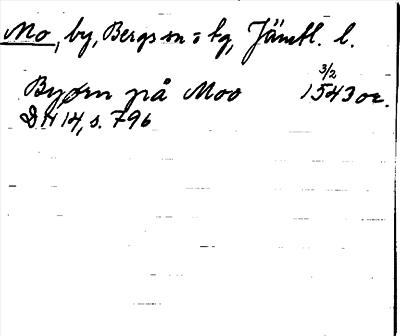 Mo, by, Bergs sn o tg, Jämtl. l.
3/2
Byørn på Moo 1543 or.
DN 14, s. 796